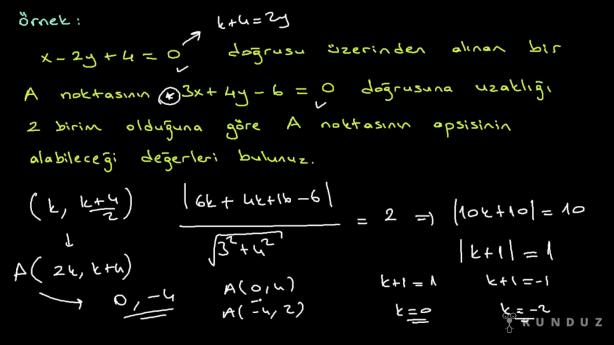 Örnek:
k+4=2y
x-2y+4=0 doğrusu üzerinden alınan bir
A noktasının 3x+4y-6=0 doğrusuna uzaklığı
2 birim olduğuna göre A noktasının apsisinin
alabileceği değerleri bulunuz.
(k, k+4/2)
|6k+4k+16-6| / √3²+4² = 2 ⇒ |10k+10|=10
|k+1|=1
A(2k, k+4)
0, -4
A(0,4)
A(-4,2)
k+1=1 k+1=-1
k=0 k=-2
KUNDUZ